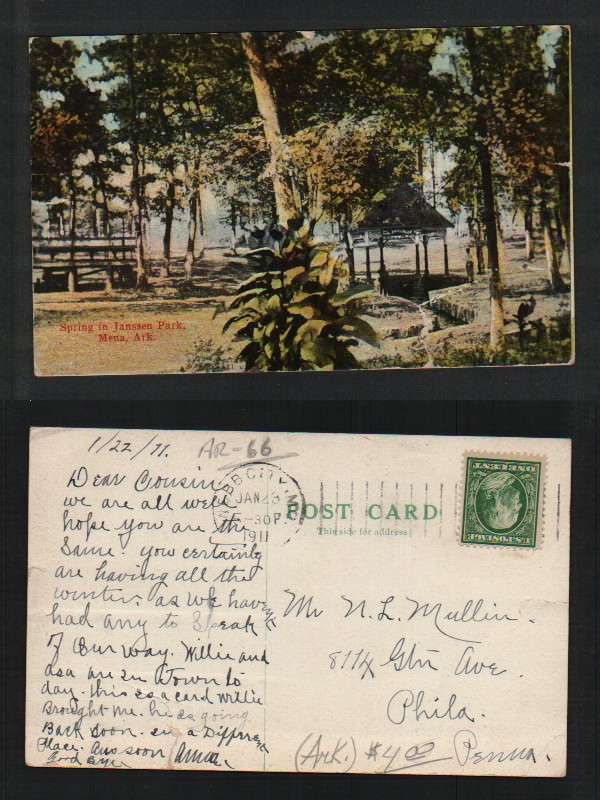 Spring in Janssen Park,
Mena, Ark.
1/22/11.
AR-66
Dear Cousin
we are all well
hope you are the
Same. you certainly
are having all the
winter. as we havent
had any to Speak
of Our way. Willie and
asa are in Town to
day. this is a card Willie
Brought me. he is going
Back Soon. in a Diffrent
Place. Ans soon Anna.
Good Bye
WEBB CITY, MO.
JAN 23
-30P
1911
POST CARD
This side for address.
U.S.POSTAGE
ONE CENT
Mr N. L. Mullin.
Gtn Ave.
Phila.
Penna.
(Ark.) $4.00